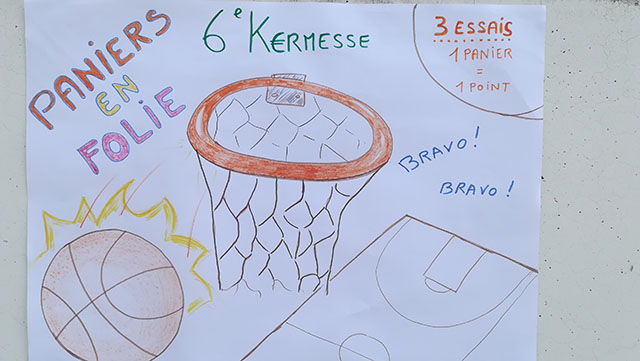 PANIERS
EN
FOLIE
6e KERMESSE
3 ESSAIS
1 PANIER
=
1 POINT
BRAVO !
BRAVO !